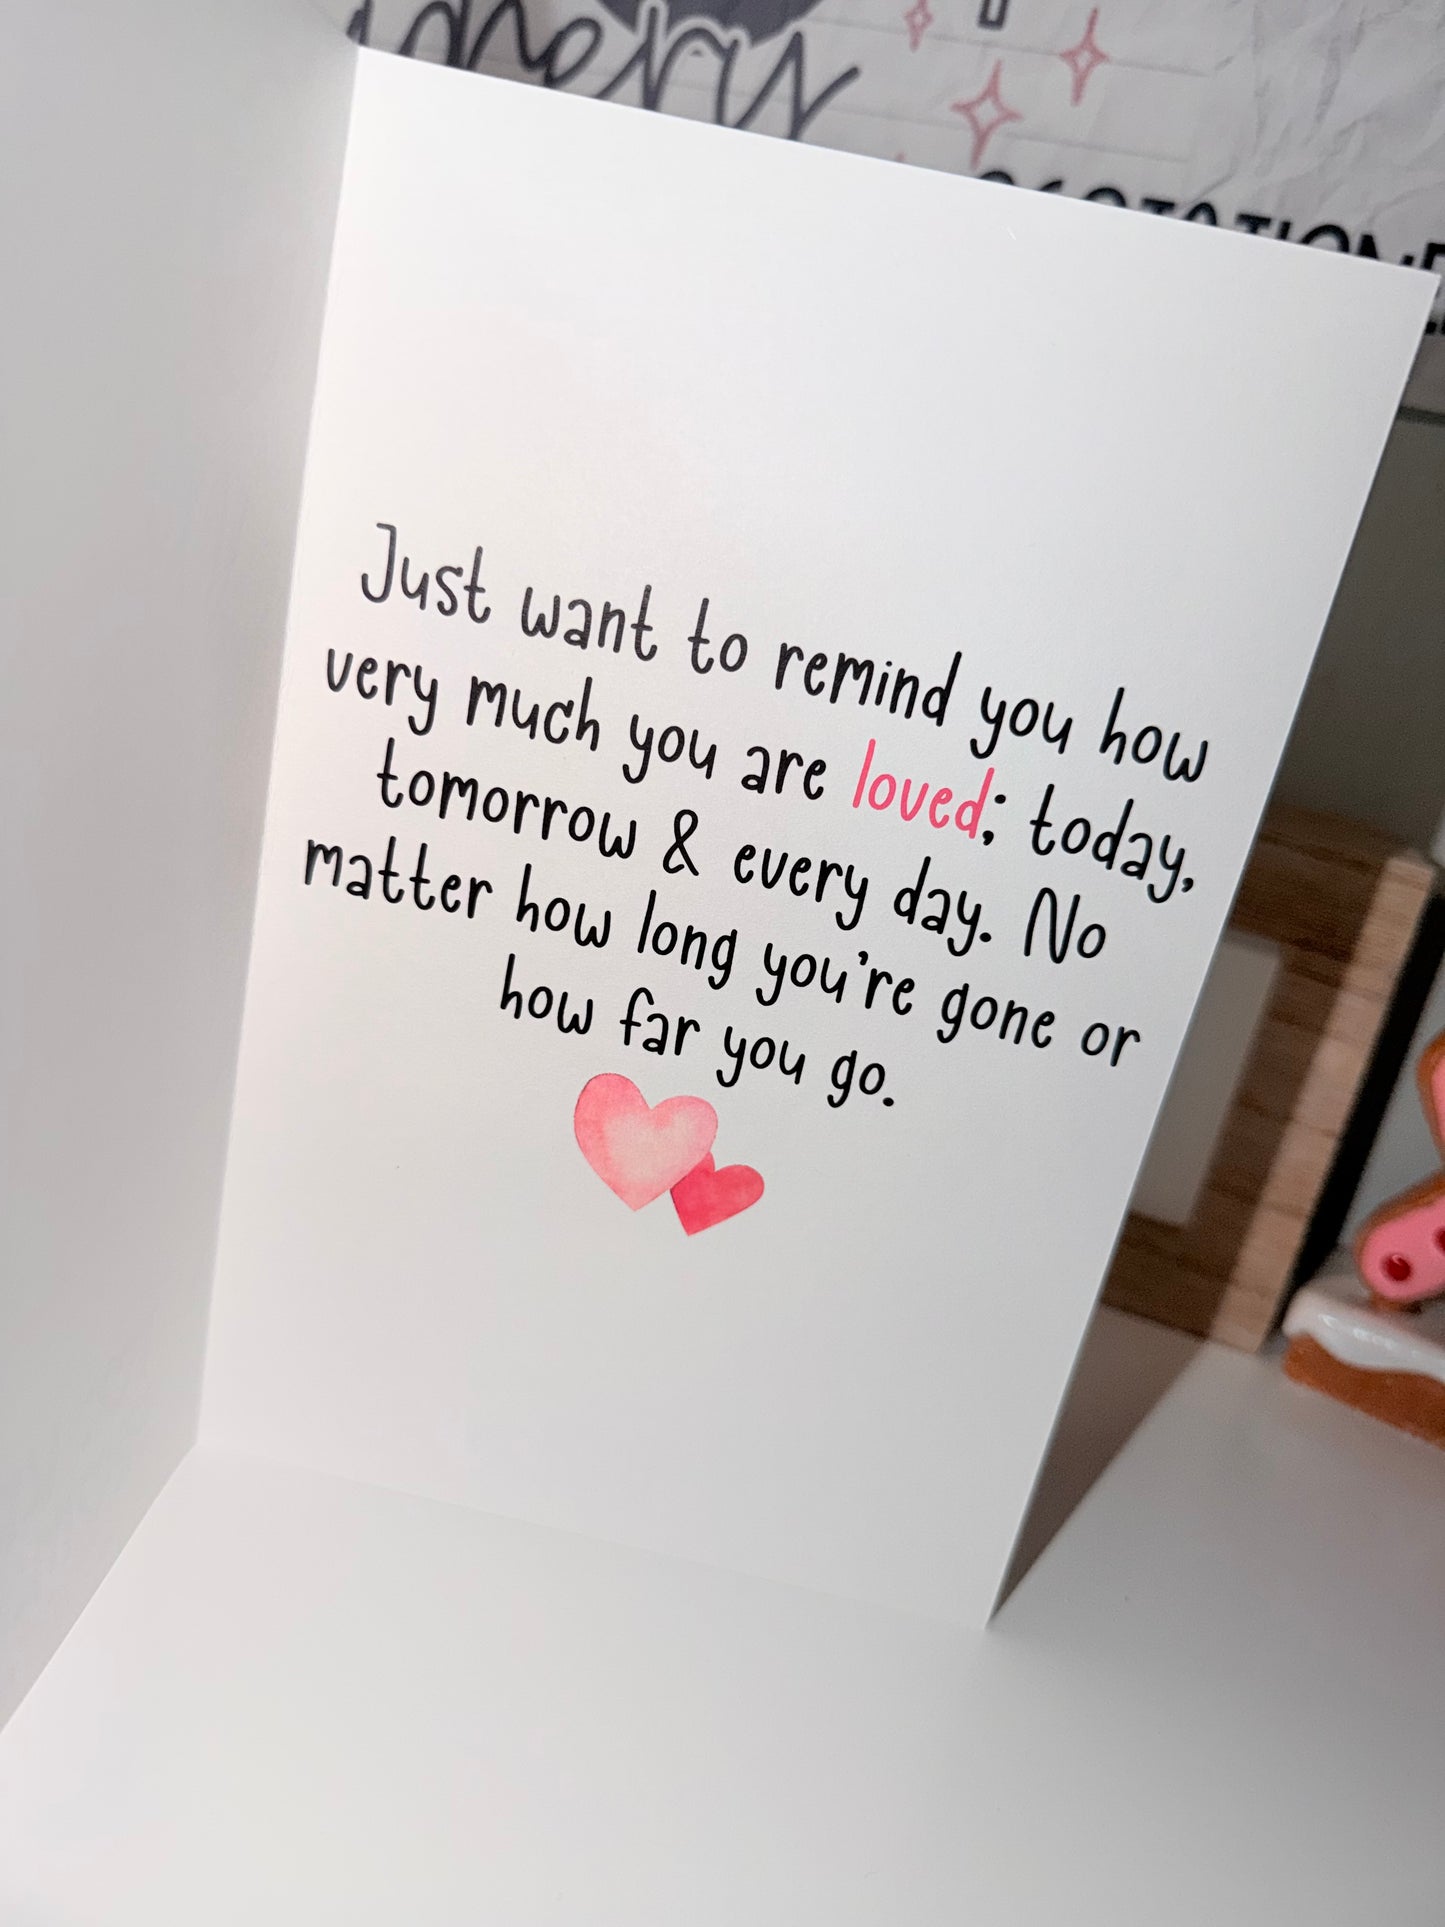 Just want to remind you how
very much you are loved; today,
tomorrow & every day. No
matter how long you're gone or
how far you go.